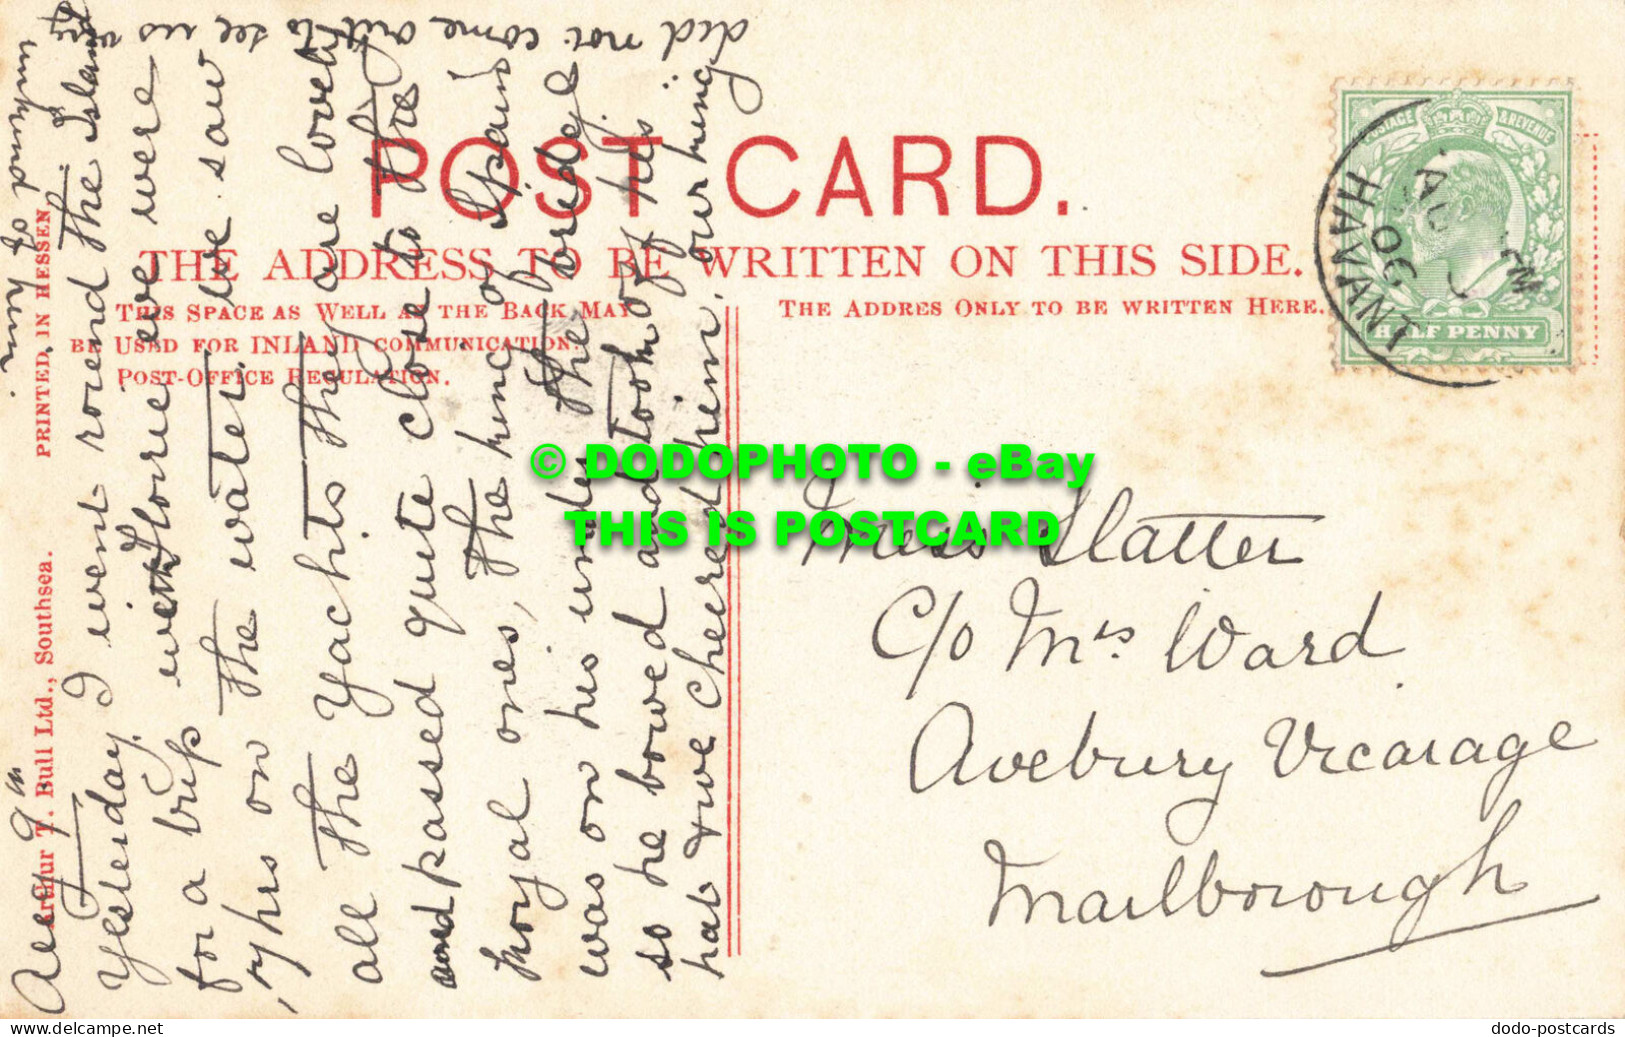 POST CARD.
THE ADDRESS TO BE WRITTEN ON THIS SIDE.
THIS SPACE AS WELL AS THE BACK MAY
BE USED FOR INLAND COMMUNICATION.
POST-OFFICE REGULATION.
THE ADDRES ONLY TO BE WRITTEN HERE.
Arthur T. Bull Ltd., Southsea.
PRINTED IN HESSEN
POSTAGE & REVENUE
HALF PENNY
HAVANT
AU
06
Miss Slatter
C/o Mrs Ward
Avebury Vicarage
Marlborough
Aug 9th
Yesterday I went round the Island
with Florie we were
for a trip
7 hrs on the water. we saw
all the Yachts they are lovely
and passed quite close to the
Royal ones, the king of Spain
was on his under the bridge
so he bowed and took off his
hat & we cheered him. our king
did not come out to see us very
unkind of him
© DODOPHOTO - eBay
THIS IS POSTCARD
www.delcampe.net
dodo-postcards